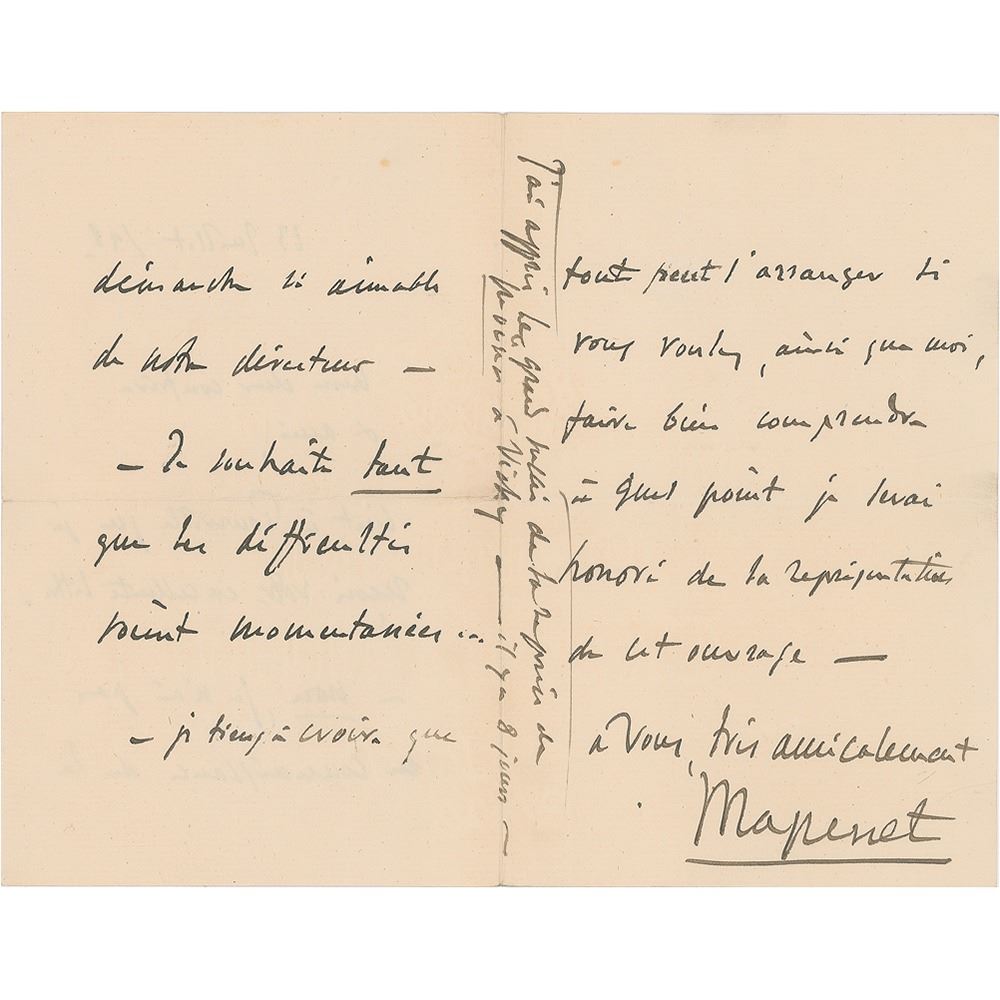 démarche si aimable
de notre directeur —
— Je souhaite tant
que les difficultés
soient momentanées...
— je tiens à croire que
tout peut s'arranger si
vous voulez, ainsi que moi,
faire bien comprendre
à quel point je serai
honoré de la représentation
de cet ouvrage —
à vous, très amicalement
Massenet
J'ai appris le grand succès de la reprise de
à Vichy — il y a 8 jours —